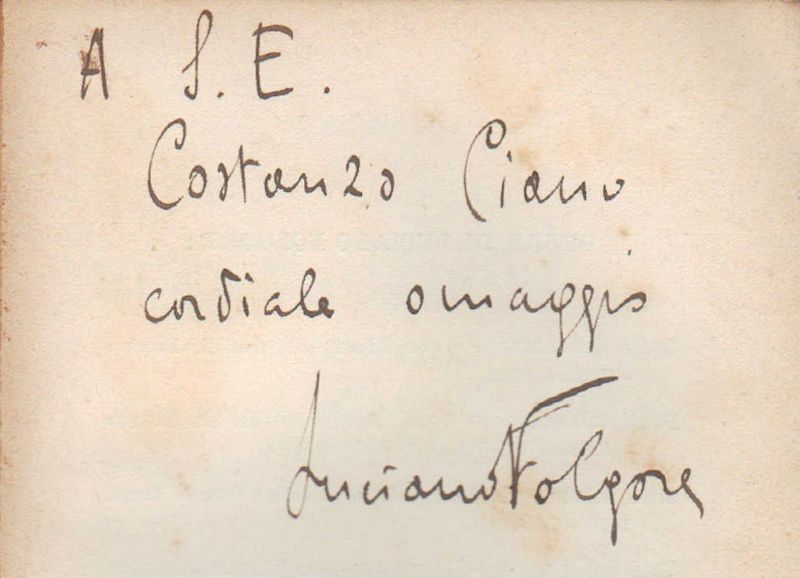 A S. E.
Costanzo Ciano
cordiale omaggio
Luciano Folgore